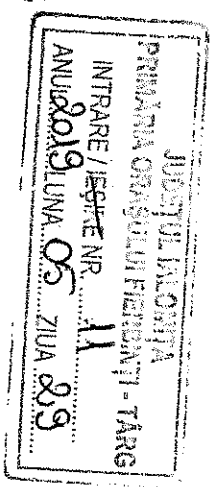 JUDEȚUL IALOMIȚA
PRIMĂRIA ORAȘULUI FIERBINȚI - TÂRG
INTRARE / IEȘIRE NR. 11
ANUL 2019 LUNA 05 ZIUA 29